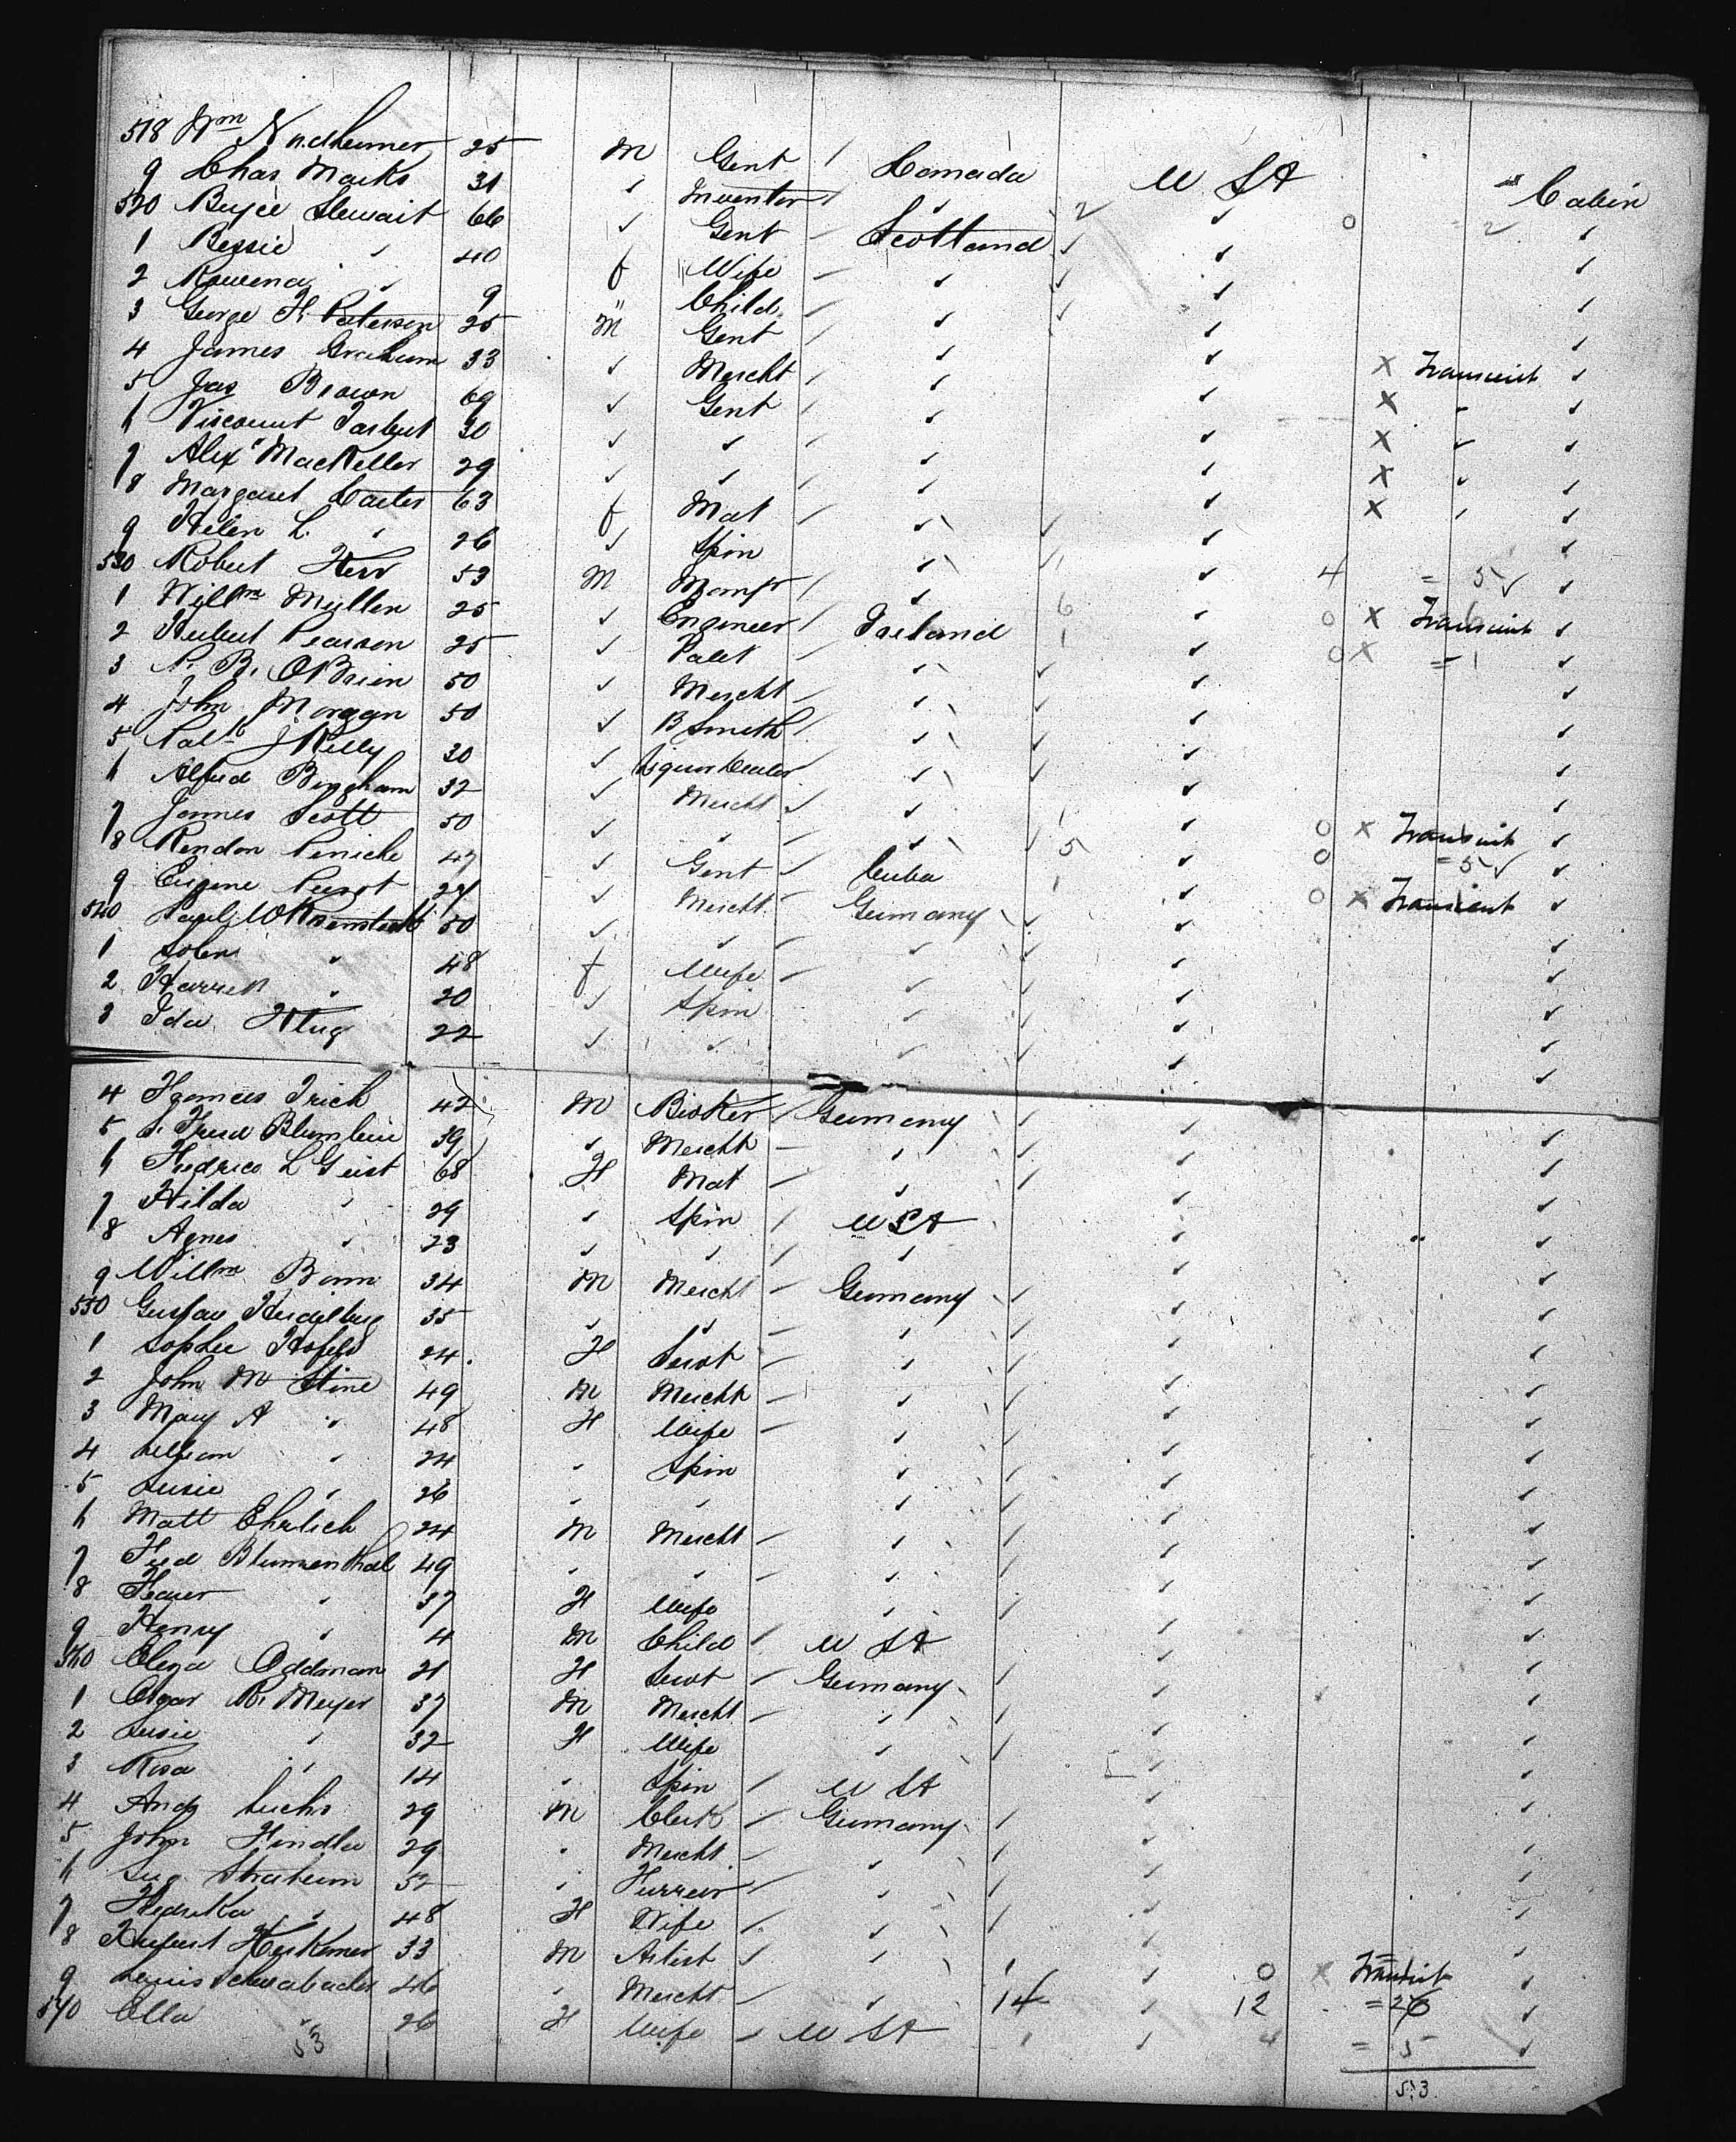 518 Wm Nordheimer 25 M Gent / Canada U St Cabin
9 Chas Marks 31 ✓ Inventor / ✓ 2 ✓ 0 = 2 ✓
520 Bryce Stewart 66 ✓ Gent - Scotland ✓ ✓ ✓
1 Bessie " 40 f Wife - ✓ ✓ ✓ ✓
2 Rowena " 9 " Child / ✓ ✓ ✓ ✓
3 George H. Paterson 25 M Gent / ✓ ✓ X Transient ✓
4 James Graham 33 ✓ Mercht / ✓ ✓ X " ✓
5 Jas Brown 69 ✓ Gent / ✓ ✓ X " ✓
6 Viscount Tarbut 30 ✓ ✓ / ✓ ✓ X " ✓
7 Alexr MacKellar 29 ✓ ✓ / ✓ ✓ X " ✓
8 Margaret Carter 63 f Mat / ✓ ✓ ✓ ✓
9 Helen L. " 26 ✓ Spin ✓ ✓ ✓ 4 = 5 ✓
530 Robert Kerr 53 M Manfr / ✓ 6 ✓ 0 X Transient ✓
1 Willm Mullen 25 ✓ Engineer / Ireland 1 ✓ 0 X = 1 ✓
2 Herbert Pearson 25 ✓ Valet - ✓ ✓ ✓ ✓
3 P. B. OBrien 50 ✓ Mercht - ✓ ✓ ✓ ✓
4 John Morgan 50 ✓ B Smith / ✓ ✓ ✓ ✓
5 Patk J Kelly 30 ✓ Liquor Dealer ✓ ✓ ✓ ✓
6 Alfred Bingham 32 ✓ Mercht ✓ ✓ 1 ✓ 0 X Transient ✓
7 James Scott 50 ✓ ✓ - ✓ 5 ✓ 0 = 5 ✓ ✓
8 Rendon Peniche 47 ✓ Gent ✓ Cuba 1 ✓ 0 X Transient ✓
9 Eugene 29 ✓ Mercht - Germany ✓ ✓ ✓
540 50 ✓ ✓ - ✓ ✓ ✓ ✓
1 " 48 f Wife - ✓ ✓ ✓ ✓
2 Harriet " 20 ✓ Spin ✓ ✓ ✓ ✓
3 Ida Klug 22 ✓ ✓ ✓ ✓ ✓ ✓
4 42 M Broker / Germany ✓ ✓ ✓
5 Fred Blumlein 39 ✓ Mercht - ✓ ✓ ✓ ✓
6 L Geist 68 F Mat - ✓ ✓ ✓ ✓
7 Hilda " 29 ✓ Spin / U St ✓ ✓
8 Agnes " 23 ✓ ✓ / ✓ ✓ ✓
9 Willm Bonn 34 M Mercht - Germany ✓ ✓ ✓
550 Gustav Heidelberg 35 ✓ ✓ - ✓ ✓ ✓ ✓
1 Sophie Hofeld 24 F Servt - ✓ ✓ ✓ ✓
2 John M Stine 49 M Mercht - ✓ ✓ ✓ ✓
3 Mary A " 48 F Wife - ✓ ✓ ✓ ✓
4 Lillian " 24 " Spin ✓ ✓ ✓ ✓
5 Susie " 26 " " ✓ ✓ ✓ ✓
6 Matt Ehrlich 24 M Mercht - ✓ ✓ ✓ ✓
7 Fred Blumenthal 49 " " - ✓ ✓ ✓ ✓
8 " 37 F Wife ✓ ✓ ✓ ✓
9 Henry " 4 M Child / U St ✓ ✓
560 Oddman 21 F Servt - Germany ✓ ✓ ✓
1 R. Meyer 37 M Mercht - ✓ ✓ ✓ ✓
2 Susie " 32 F Wife ✓ ✓ ✓ ✓
3 Rosa " 14 " Spin / U St ✓ ✓
4 Andr 29 M Clerk / Germany ✓ ✓ ✓
5 John 29 " Mercht / ✓ ✓ ✓ ✓
6 Aug Straheim 52 " Furrier / ✓ ✓ ✓ ✓
7 " 48 F Wife / ✓ ✓ ✓ ✓
8 Hubert Herkomer 33 M Artist / ✓ ✓ ✓ 0 X Transient ✓
9 Louis Schwabacher 46 " Mercht - ✓ 14 ✓ 12 = 26 ✓
570 Ella " 26 F Wife - U St 1 ✓ 4 = 5 ✓
53 53